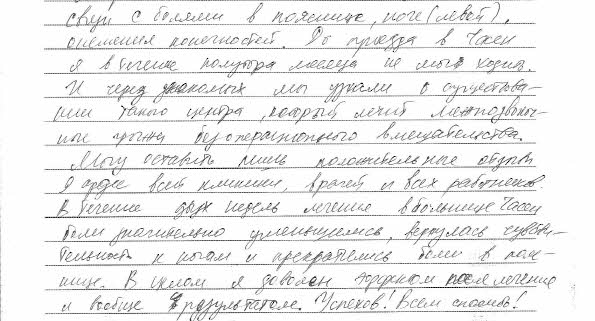 связи с болями в пояснице, ноге (левой),
онемения конечностей. До приезда в Часен
я в течение полутора месяца не могла ходить.
И через знакомых мы узнали о существова-
нии такого центра, который лечит межпозвоноч-
ные грыжи без операционного вмешательства.
Могу оставить лишь положительные отзывы
в адрес всей клиники, врачей и всех работников.
В течение двух недель лечения в больнице Часен
боли значительно уменьшились, вернулась чувстви-
тельность к ногам и прекратились боли в пояс-
нице. В целом я доволен эффектом после лечения
и вообще результатом. Успехов! Всем спасибо!